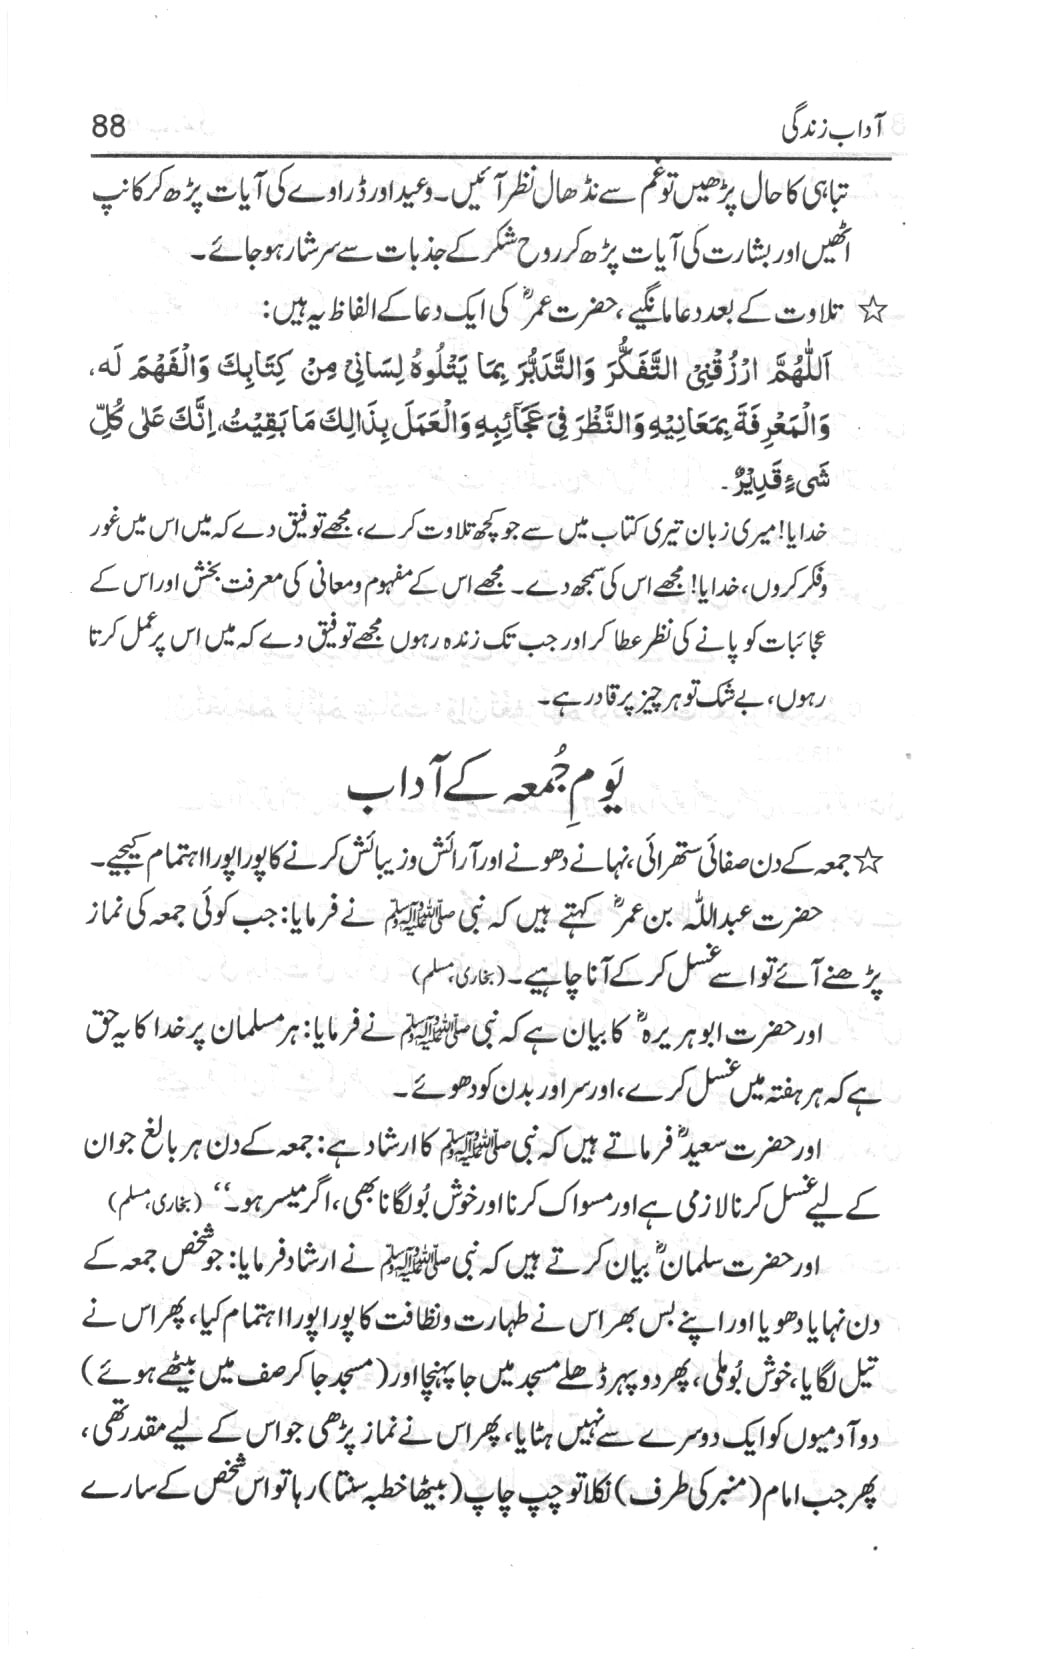 آداب زندگی 88
تباہی کا حال پڑھیں تو غم سے نڈھال نظر آئیں۔ وعید اور ڈراوے کی آیات پڑھ کر کانپ
اٹھیں اور بشارت کی آیات پڑھ کر روح شکر کے جذبات سے سرشار ہو جائے۔
☆ تلاوت کے بعد دعا مانگیے، حضرت عمرؓ کی ایک دعا کے الفاظ یہ ہیں:
اَللّٰهُمَّ ارْزُقْنِیْ التَّفَكُّرَ وَالتَّدَبُّرَ بِمَا يَتْلُوهُ لِسَانِیْ مِنْ كِتَابِكَ وَالْفَهْمَ لَه،
وَالْمَعْرِفَةَ بِمَعَانِيْهِ وَالنَّظْرَ فِیْ عَجَآئِبِهِ وَالْعَمَلَ بِذَالِكَ مَا بَقِيْتُ، اِنَّكَ عَلٰی كُلِّ
شَیْءٍ قَدِيْرٌ۔
خدایا! میری زبان تیری کتاب میں سے جو کچھ تلاوت کرے، مجھے توفیق دے کہ میں اس میں غور
وفکر کروں، خدایا! مجھے اس کی سمجھ دے۔ مجھے اس کے مفہوم ومعانی کی معرفت بخش اور اس کے
عجائبات کو پانے کی نظر عطا کر اور جب تک زندہ رہوں مجھے توفیق دے کہ میں اس پر عمل کرتا
رہوں، بے شک تو ہر چیز پر قادر ہے۔
یَومِ جُمعہ کے آداب
☆ جمعہ کے دن صفائی ستھرائی، نہانے دھونے اور آرائش وزیبائش کرنے کا پورا پورا اہتمام کیجیے۔
حضرت عبداللہ بن عمرؓ کہتے ہیں کہ نبی ﷺ نے فرمایا: جب کوئی جمعہ کی نماز
پڑھنے آئے تو اسے غسل کر کے آنا چاہیے۔ (بخاری، مسلم)
اور حضرت ابو ہریرہؓ کا بیان ہے کہ نبی ﷺ نے فرمایا: ہر مسلمان پر خدا کا یہ حق
ہے کہ ہر ہفتہ میں غسل کرے، اور سر اور بدن کو دھوئے۔
اور حضرت سعیدؓ فرماتے ہیں کہ نبی ﷺ کا ارشاد ہے: جمعہ کے دن ہر بالغ جوان
کے لیے غسل کرنا لازمی ہے اور مسواک کرنا اور خوش بُو لگانا بھی، اگر میسر ہو۔‘‘ (بخاری، مسلم)
اور حضرت سلمانؓ بیان کرتے ہیں کہ نبی ﷺ نے ارشاد فرمایا: جو شخص جمعہ کے
دن نہایا دھویا اور اپنے بس بھر اس نے طہارت ونظافت کا پورا پورا اہتمام کیا، پھر اس نے
تیل لگایا، خوش بُو ملی، پھر دوپہر ڈھلے مسجد میں جا پہنچا اور (مسجد جا کر صف میں بیٹھے ہوئے)
دو آدمیوں کو ایک دوسرے سے نہیں ہٹایا، پھر اس نے نماز پڑھی جو اس کے لیے مقدر تھی،
پھر جب امام (منبر کی طرف) نکلا تو چپ چاپ (بیٹھا خطبہ سنتا) رہا تو اس شخص کے سارے